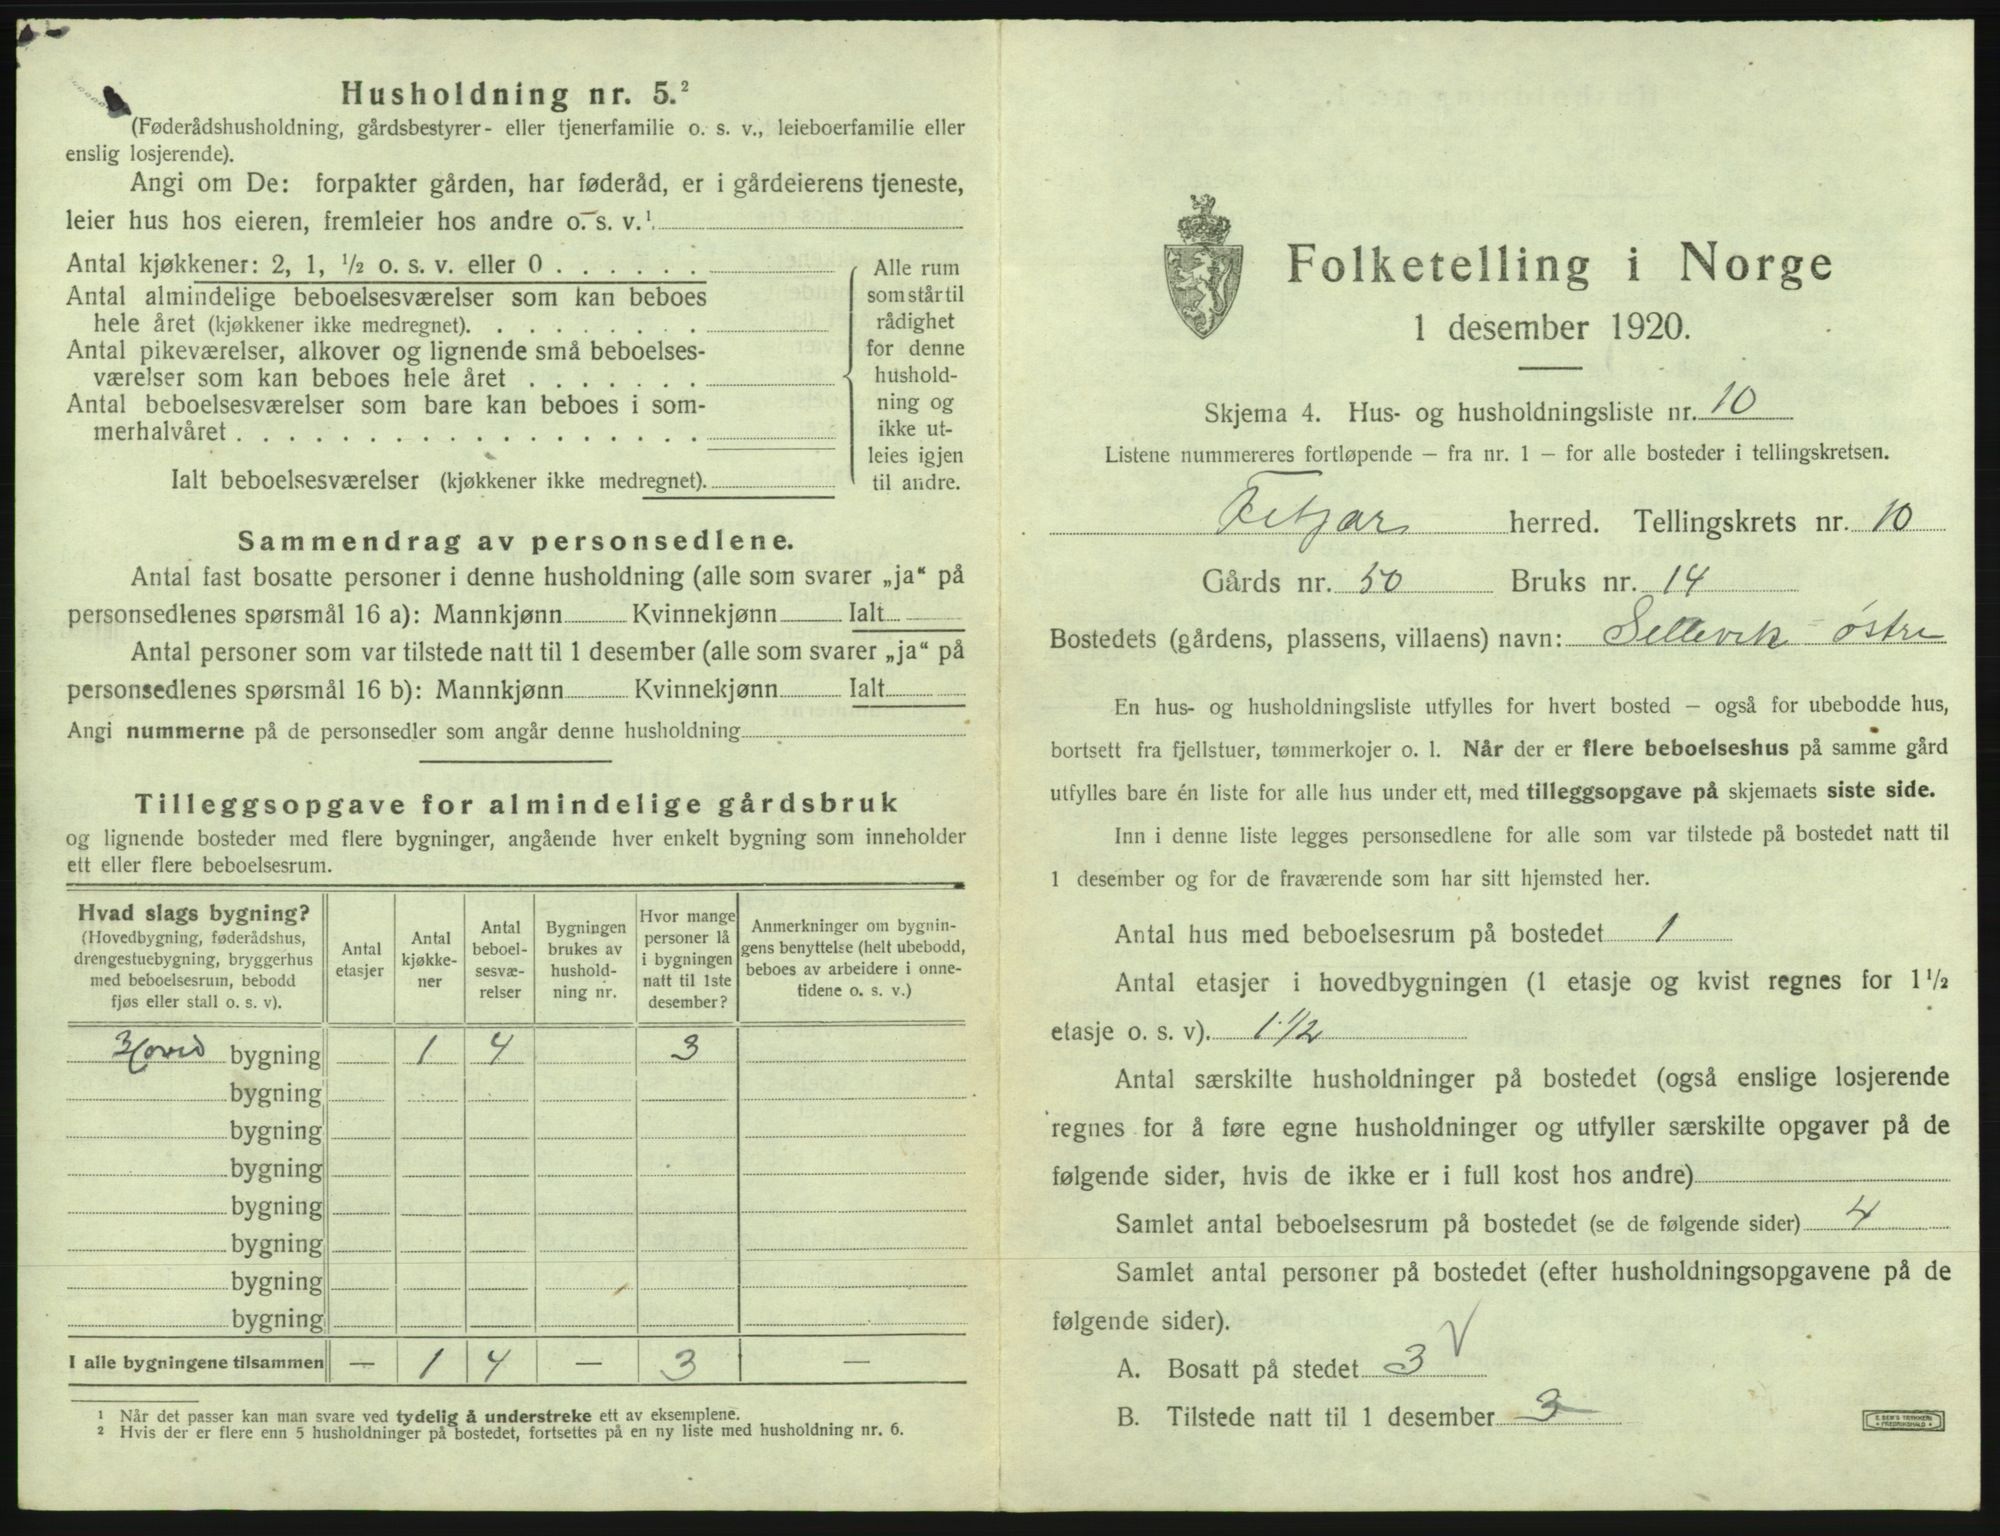 Husholdning nr. 5.²
(Føderådshusholdning, gårdsbestyrer- eller tjenerfamilie o. s. v., leieboerfamilie eller
enslig losjerende).
Angi om De: forpakter gården, har føderåd, er i gårdeierens tjeneste,
leier hus hos eieren, fremleier hos andre o. s. v.¹
Antal kjøkkener: 2, 1, ½ o. s. v. eller 0 . . . . . .
Antal almindelige beboelsesværelser som kan beboes
hele året (kjøkkener ikke medregnet). . . . . . . . .
Antal pikeværelser, alkover og lignende små beboelses-
værelser som kan beboes hele året . . . . . . .
Antal beboelsesværelser som bare kan beboes i som-
merhalvåret . . . . . . . . . . . . . . . . .
Ialt beboelsesværelser (kjøkkener ikke medregnet).
Alle rum
som står til
rådighet
for denne
hushold-
ning og
ikke ut-
leies igjen
til andre.
Sammendrag av personsedlene.
Antal fast bosatte personer i denne husholdning (alle som svarer „ja“ på
personsedlenes spørsmål 16 a): Mannkjønn Kvinnekjønn Ialt
Antal personer som var tilstede natt til 1 desember (alle som svarer „ja“ på
personsedlenes spørsmål 16 b): Mannkjønn Kvinnekjønn Ialt
Angi nummerne på de personsedler som angår denne husholdning
Tilleggsopgave for almindelige gårdsbruk
og lignende bosteder med flere bygninger, angående hver enkelt bygning som inneholder
ett eller flere beboelsesrum.
Hvad slags bygning?
(Hovedbygning, føderådshus,
drengestuebygning, bryggerhus
med beboelsesrum, bebodd
fjøs eller stall o. s. v).
Antal
etasjer
Antal
kjøkke-
ner
Antal
beboel-
sesvæ-
relser
Bygningen
brukes av
hushold-
ning nr.
Hvor mange
personer lå
i bygningen
natt til 1ste
desember?
Anmerkninger om bygnin-
gens benyttelse (helt ubebodd,
beboes av arbeidere i onne-
tidene o. s. v.)
Hoved bygning 1 4 3
bygning
bygning
bygning
bygning
bygning
bygning
bygning
I alle bygningene tilsammen — 1 4 — 3 —
¹ Når det passer kan man svare ved tydelig å understreke ett av eksemplene.
² Hvis der er flere enn 5 husholdninger på bostedet, fortsettes på en ny liste med husholdning nr. 6.
Folketelling i Norge
1 desember 1920.
Skjema 4. Hus- og husholdningsliste nr. 10
Listene nummereres fortløpende – fra nr. 1 – for alle bosteder i tellingskretsen.
Fitjar herred. Tellingskrets nr. 10
Gårds nr. 50 Bruks nr. 14
Bostedets (gårdens, plassens, villaens) navn: Sellevik østre
En hus- og husholdningsliste utfylles for hvert bosted – også for ubebodde hus,
bortsett fra fjellstuer, tømmerkojer o. l. Når der er flere beboelseshus på samme gård
utfylles bare én liste for alle hus under ett, med tilleggsopgave på skjemaets siste side.
Inn i denne liste legges personsedlene for alle som var tilstede på bostedet natt til
1 desember og for de fraværende som har sitt hjemsted her.
Antal hus med beboelsesrum på bostedet 1
Antal etasjer i hovedbygningen (1 etasje og kvist regnes for 1½
etasje o. s. v). 1.1/2
Antal særskilte husholdninger på bostedet (også enslige losjerende
regnes for å føre egne husholdninger og utfyller særskilte opgaver på de
følgende sider, hvis de ikke er i full kost hos andre)
Samlet antal beboelsesrum på bostedet (se de følgende sider) 4
Samlet antal personer på bostedet (efter husholdningsopgavene på de
følgende sider).
A. Bosatt på stedet 3
B. Tilstede natt til 1 desember 3